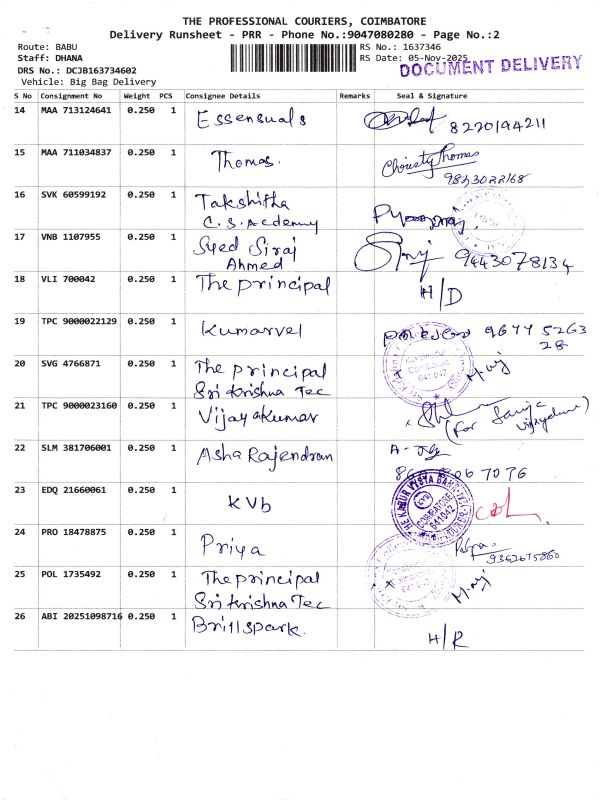 THE PROFESSIONAL COURIERS, COIMBATORE
Delivery Runsheet - PRR - Phone No.:9047080280 - Page No.:2
Route: BABU
Staff: DHANA
DRS No.: DCJB163734602
Vehicle: Big Bag Delivery
RS No.: 1637346
RS Date: 05-Nov-2025
DOCUMENT DELIVERY
S No Consignment No Weight PCS Consignee Details Remarks Seal & Signature
14 MAA 713124641 0.250 1 Essensuals 8220194211
15 MAA 711034837 0.250 1 Thomas. Christy Thomas
9823022168
16 SVK 60599192 0.250 1 Takshitha
C.S. Acdemy
17 VNB 1107955 0.250 1 Syed Siraj
Ahmed
9443078134
18 VLI 700042 0.250 1 The principal H/D
19 TPC 9000022129 0.250 1 Kumarvel 96775263
28
20 SVG 4766871 0.250 1 The principal
Sri Krishna Tec
21 TPC 9000023160 0.250 1 Vijayakumar
(For
22 SLM 381706001 0.250 1 Asha Rajendran
7076
23 EDQ 21660061 0.250 1 KVb
COIMBATORE
641042
24 PRO 18478875 0.250 1 Priya
9362675860
25 POL 1735492 0.250 1 The principal
Sri Krishna Tec
26 ABI 20251098716 0.250 1 Brillspark. H/R